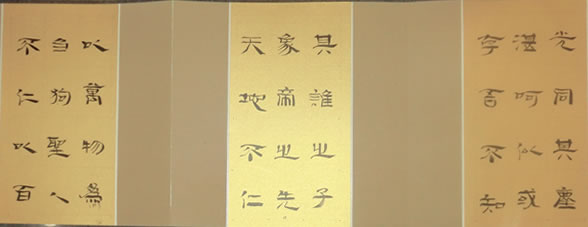 光同其塵
湛呵似或
存吾不知
其誰之子
象帝之先
天地不仁
以萬物為
芻狗聖人
不仁以百